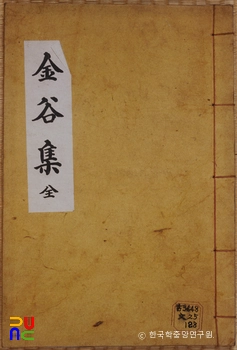 金谷集 全
© 한국학중앙연구원